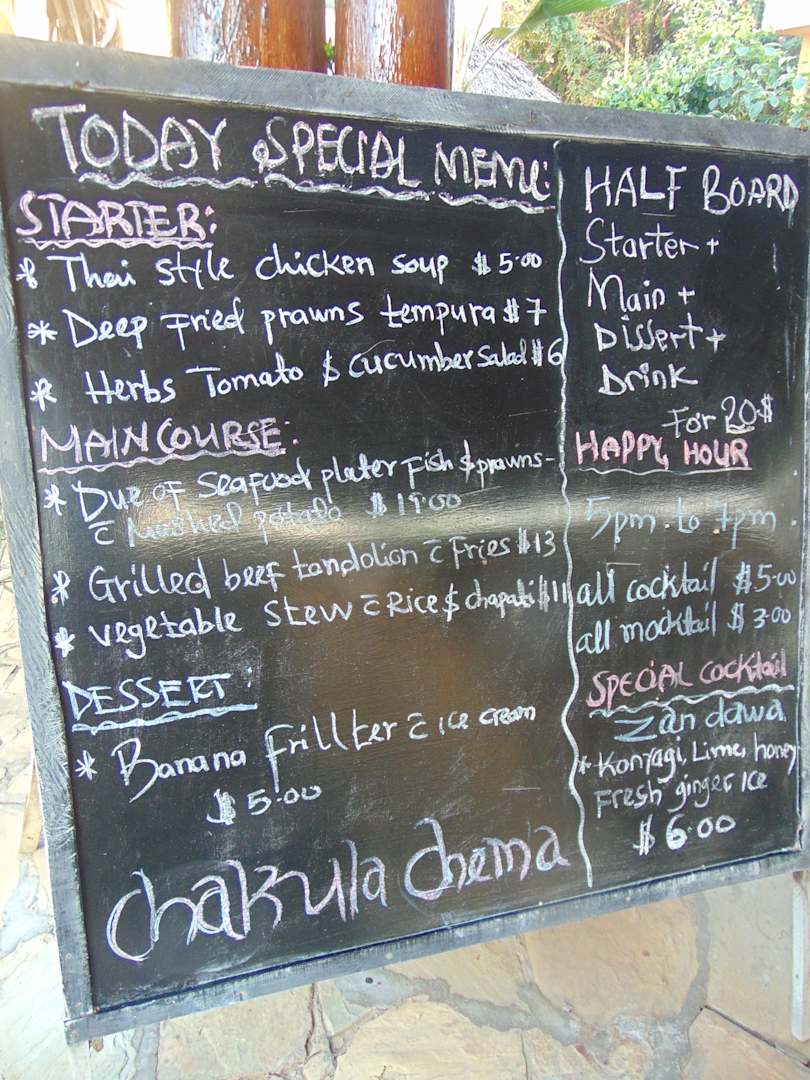 TODAY SPECIAL MENU:
STARTER:
* Thai style chicken soup $ 5.00
* Deep Fried prawns tempura $ 7
* Herbs Tomato $ cucumber Salad $ 6
MAIN COURSE:
* Due of seafood plater fish $ prawns -
c̄ mashed potato $
* Grilled beef tandolian c̄ Fries $ 13
* vegetable stew c̄ Rice $ chapati $ 11
DESSERT:
* Banana frillter c̄ ice cream
$ 5.00
chakula chema
HALF BOARD
Starter +
Main +
Dissert +
Drink
For 20 $
HAPPY HOUR
5pm . to . 7pm .
all cocktail $ 5.00
all mocktail $ 3.00
SPECIAL COCKTAIL
Zan dawa
* Konyagi, Lime, honey
Fresh ginger ice
$ 6.00